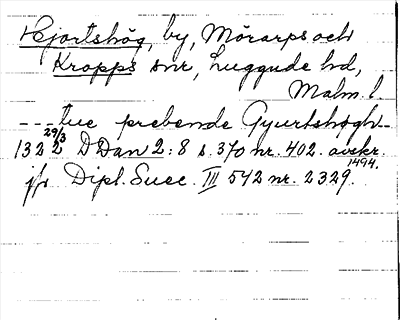 Hjortshög, by, Mörarps och
Kropps snr, Luggude hd,
Malm. l.
---tue prebende Gyurtshøgh---
29/3
1322 DDan 2:8 s. 370 nr. 402. avskr.
1494.
jfr Dipl. Suec. III 542 nr. 2329.